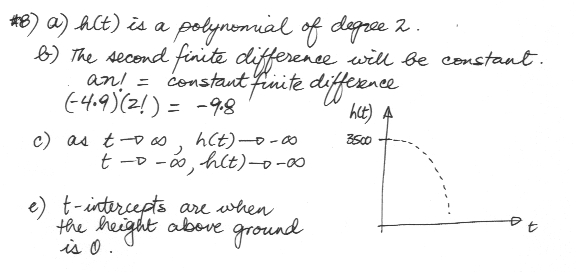 #8) a) h(t) is a polynomial of degree 2.
b) The second finite difference will be constant.
an! = constant finite difference
(-4.9)(2!) = -9.8
c) as t→∞, h(t)→-∞
t→-∞, h(t)→-∞
h(t)
3500
t
e) t-intercepts are when
the height above ground
is 0.